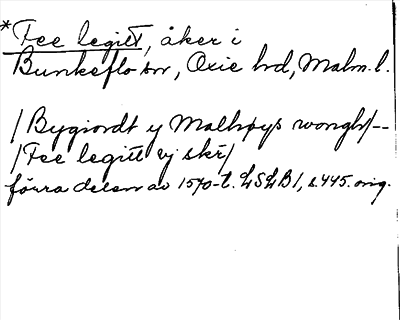 *Fee legitt, åker i
Bunkeflo sn, Oxie hd, Malm. l.
/Bygiordt y Malhøys wongh/--
/Fee legitt vj skr/
förra delen av 1570-t. LSLB 1, s. 445. orig.